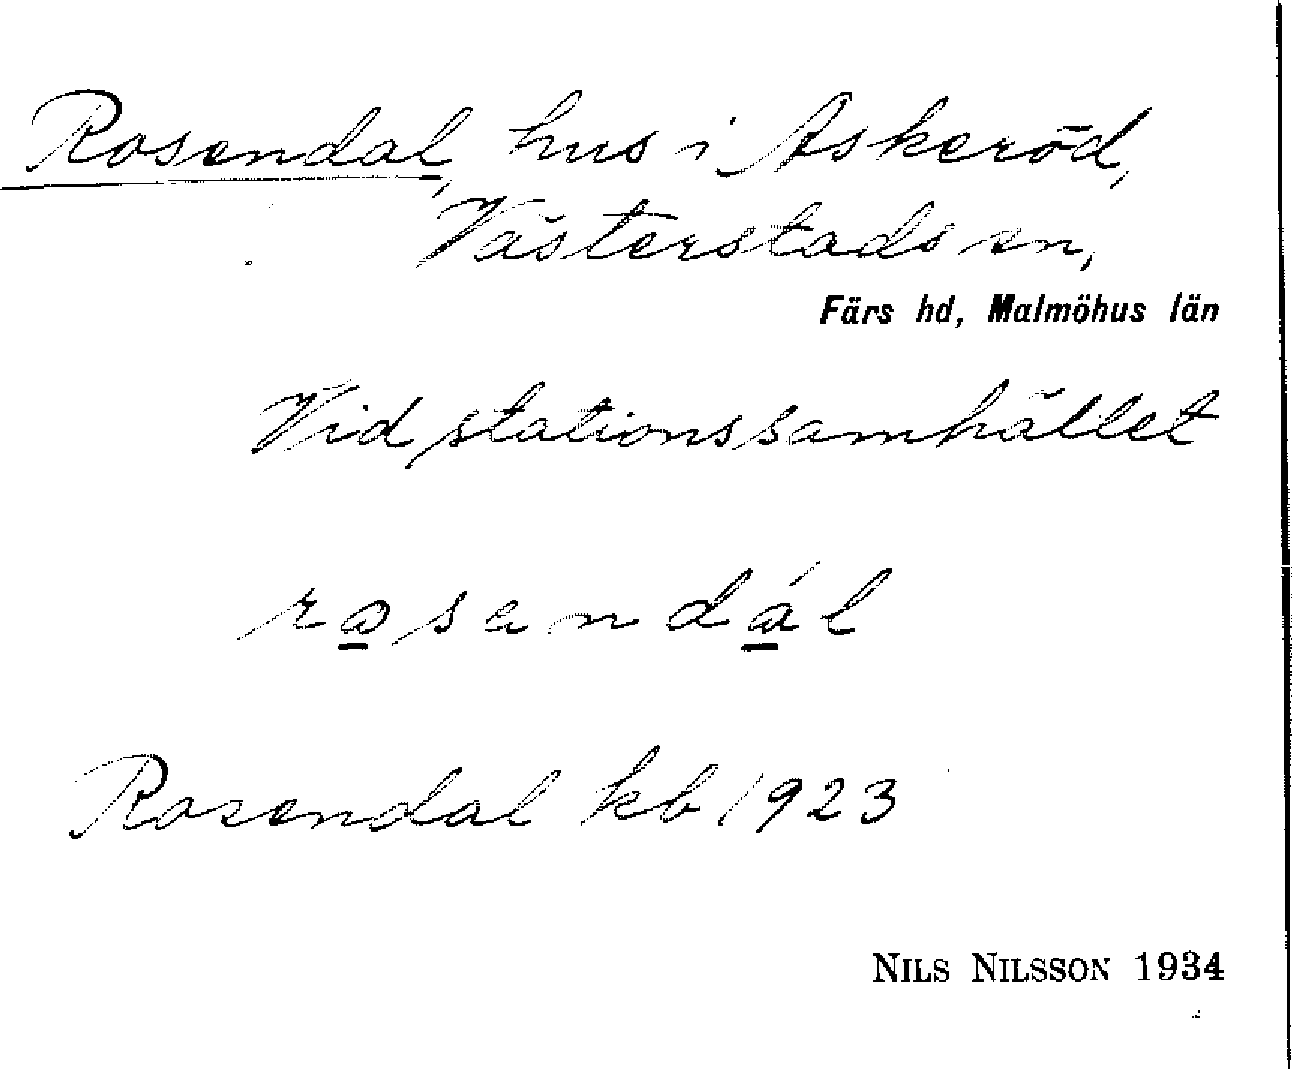 Rosendal, hus i Askeröd,
Västerstads sn,
Färs hd, Malmöhus län
Vid stationssamhället
rosandál
Rosendal kb 1923
NILS NILSSON 1934